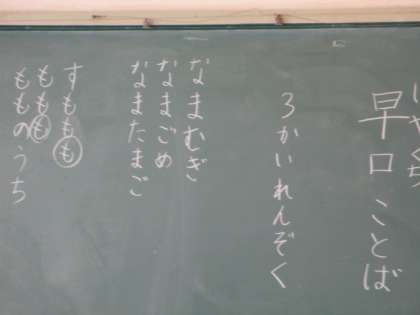 はやくち
早口ことば
3かいれんぞく
なまむぎ
なまごめ
なまたまご
すももも
ももも
もものうち